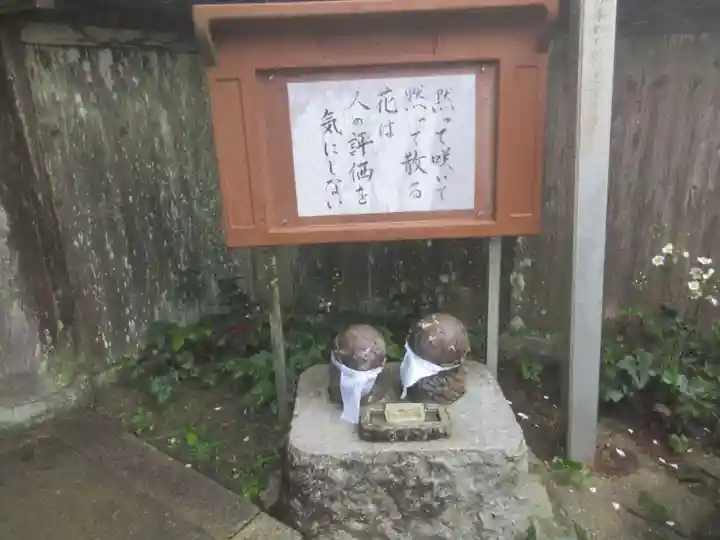 黙って咲いて
黙って散る
花は
人の評価を
気にしない